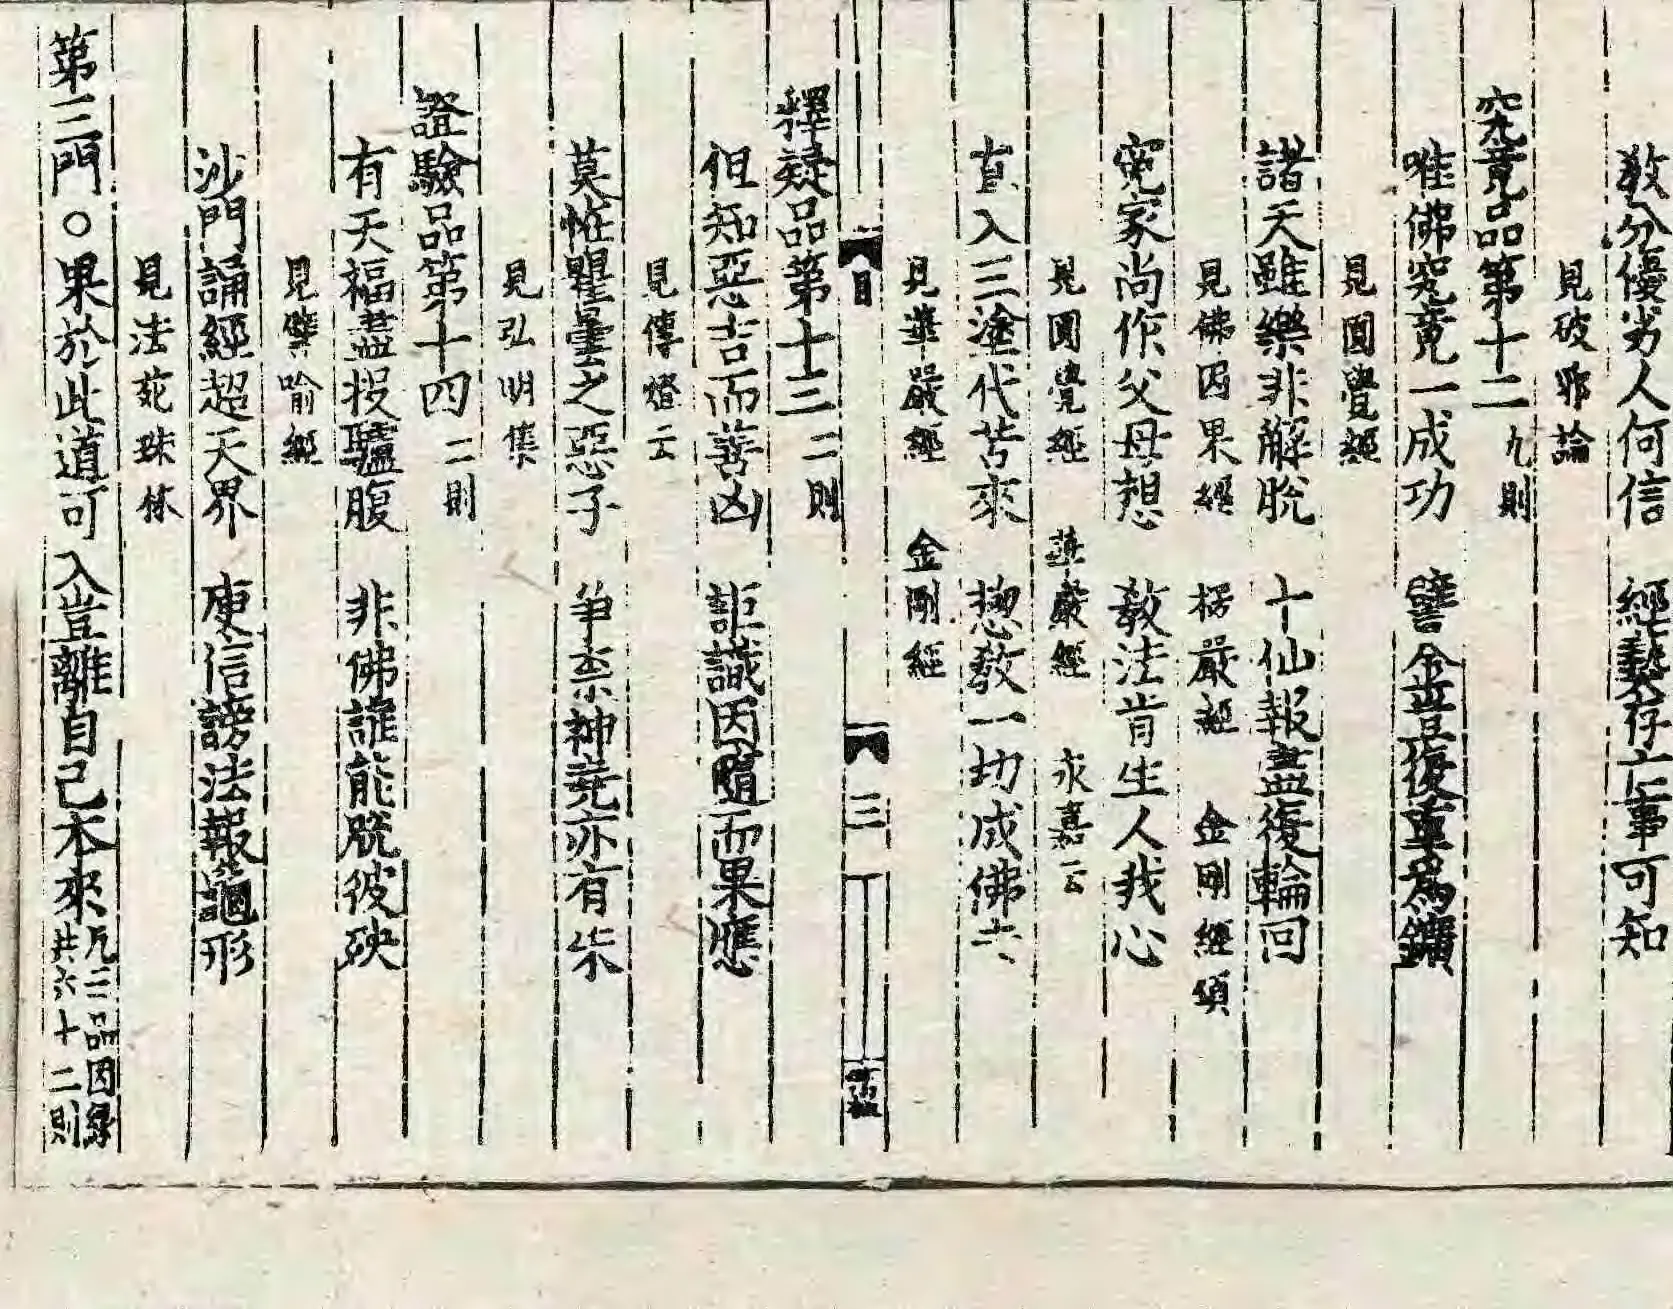 教分優劣人何信　經發存亡事可知
見破邪論
究竟品第十二　九則
唯佛究竟一成功　譬金豈復重爲鑛
見圓覺經
諸天雖樂非解脫　十仙報盡復輪回
見佛因果經　楞嚴經　金剛經頌
冤家尚作父母想　敎法肯生人我心
見圓覺經　華嚴經　永嘉云
直入三塗代苦來　惣敎一切成佛去
見華嚴經　金剛經
目　三
釋疑品第十三　二則
但知惡吉而善凶　詎識因隨而果應
見傳燈云
莫恠瞿曇之惡子　爭柰神堯亦有朱
見弘明集
證驗品第十四　二則
有天福盡投驢腹　非佛誰能脫彼殃
見譬喻經
沙門誦經超天界　庾信謗法報龜形
見法苑珠林
第三門○果於此道可入豈離自己本來　凡三品因緣共六十二則